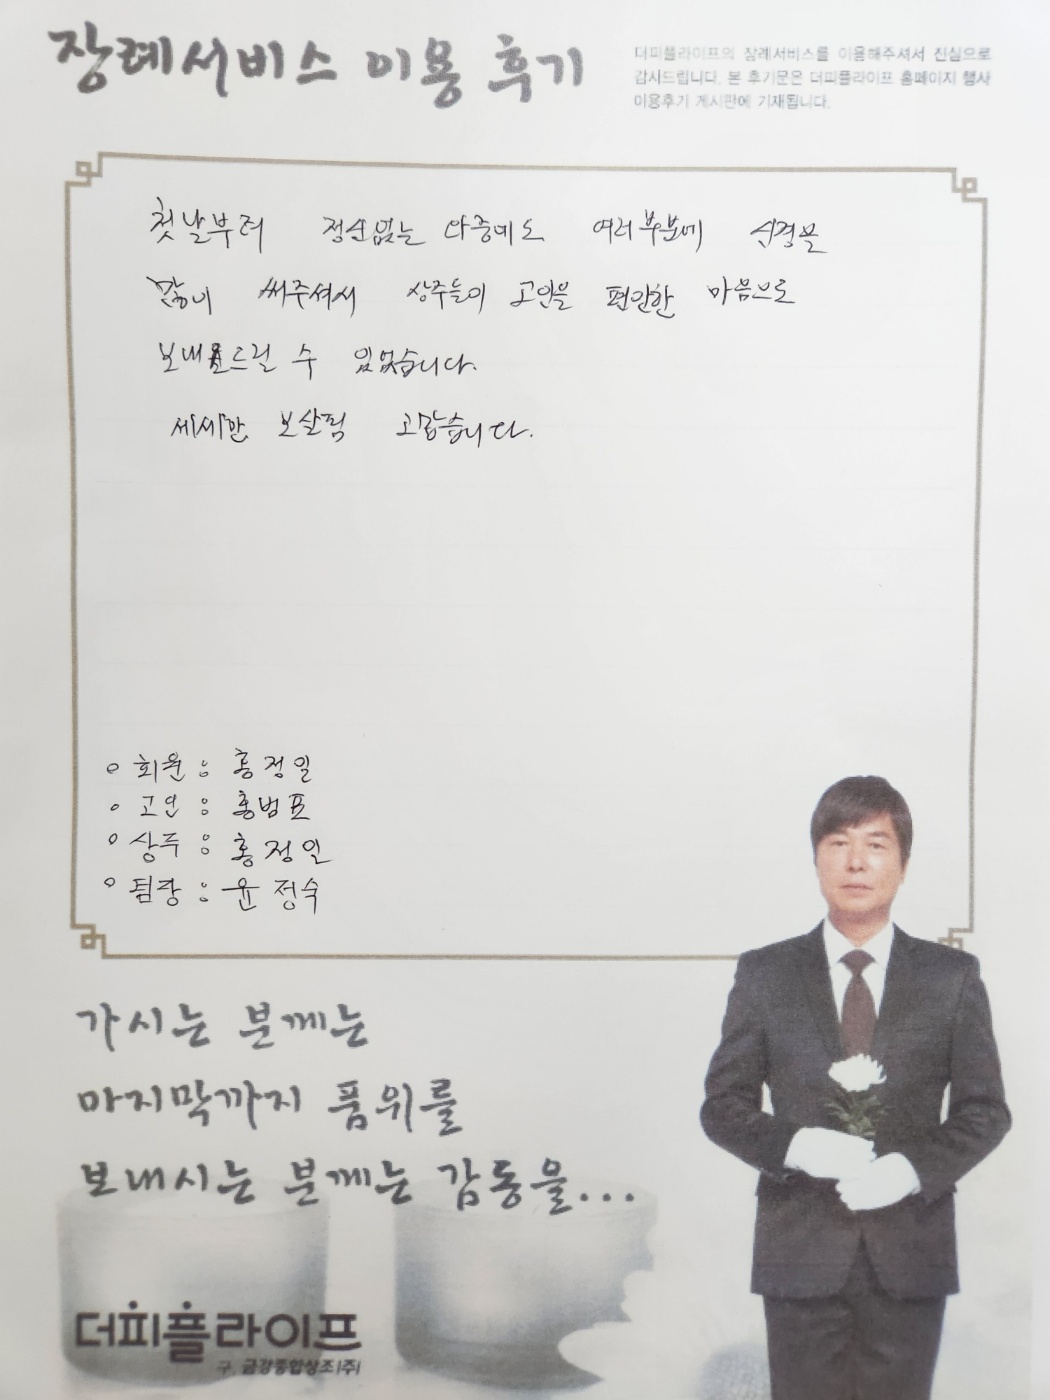 장례서비스 이용 후기
더피플라이프의 장례서비스를 이용해주셔서 진심으로
감사드립니다. 본 후기문은 더피플라이프 홈페이지 행사
이용후기 게시판에 기재됩니다.
첫날부터 정신없는 와중에도 여러부분에 신경을
많이 써주셔서 상주들이 고인을 편안한 마음으로
보내드릴 수 있었습니다.
세세한 보살핌 고맙습니다.
○ 회원 : 홍정일
○ 고인 : 홍범표
○ 상주 : 홍정일
○ 팀장 : 윤정숙
가시는 분께는
마지막까지 품위를
보내시는 분께는 감동을...
더피플라이프
구. 금강종합상조(주)